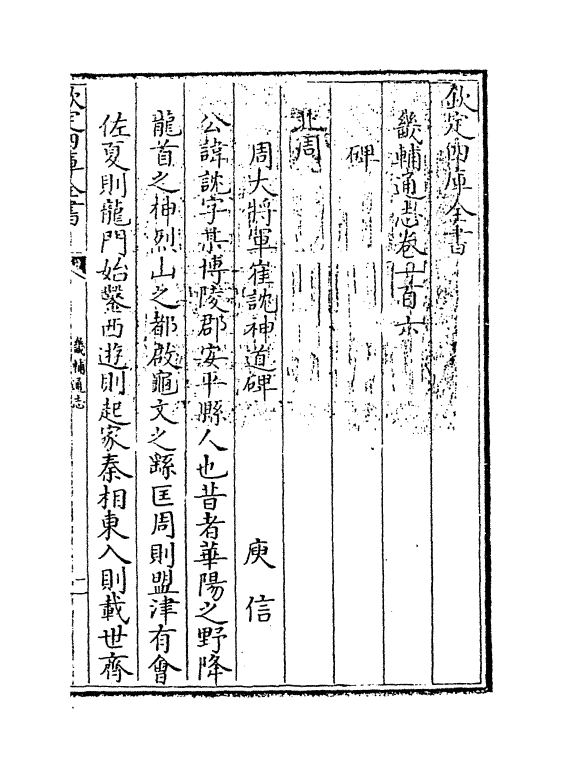 欽定四庫全書
畿輔通志卷一百六
碑
北周
周大將軍崔訦神道碑 庾信
公諱訦字某博陵郡安平縣人也昔者華陽之野降
龍首之神烈山之都啟龜文之繇匡周則盟津有會
佐夏則龍門始鑿西逰則起家秦相東入則載世齊
欽定四庫全書
畿輔通志